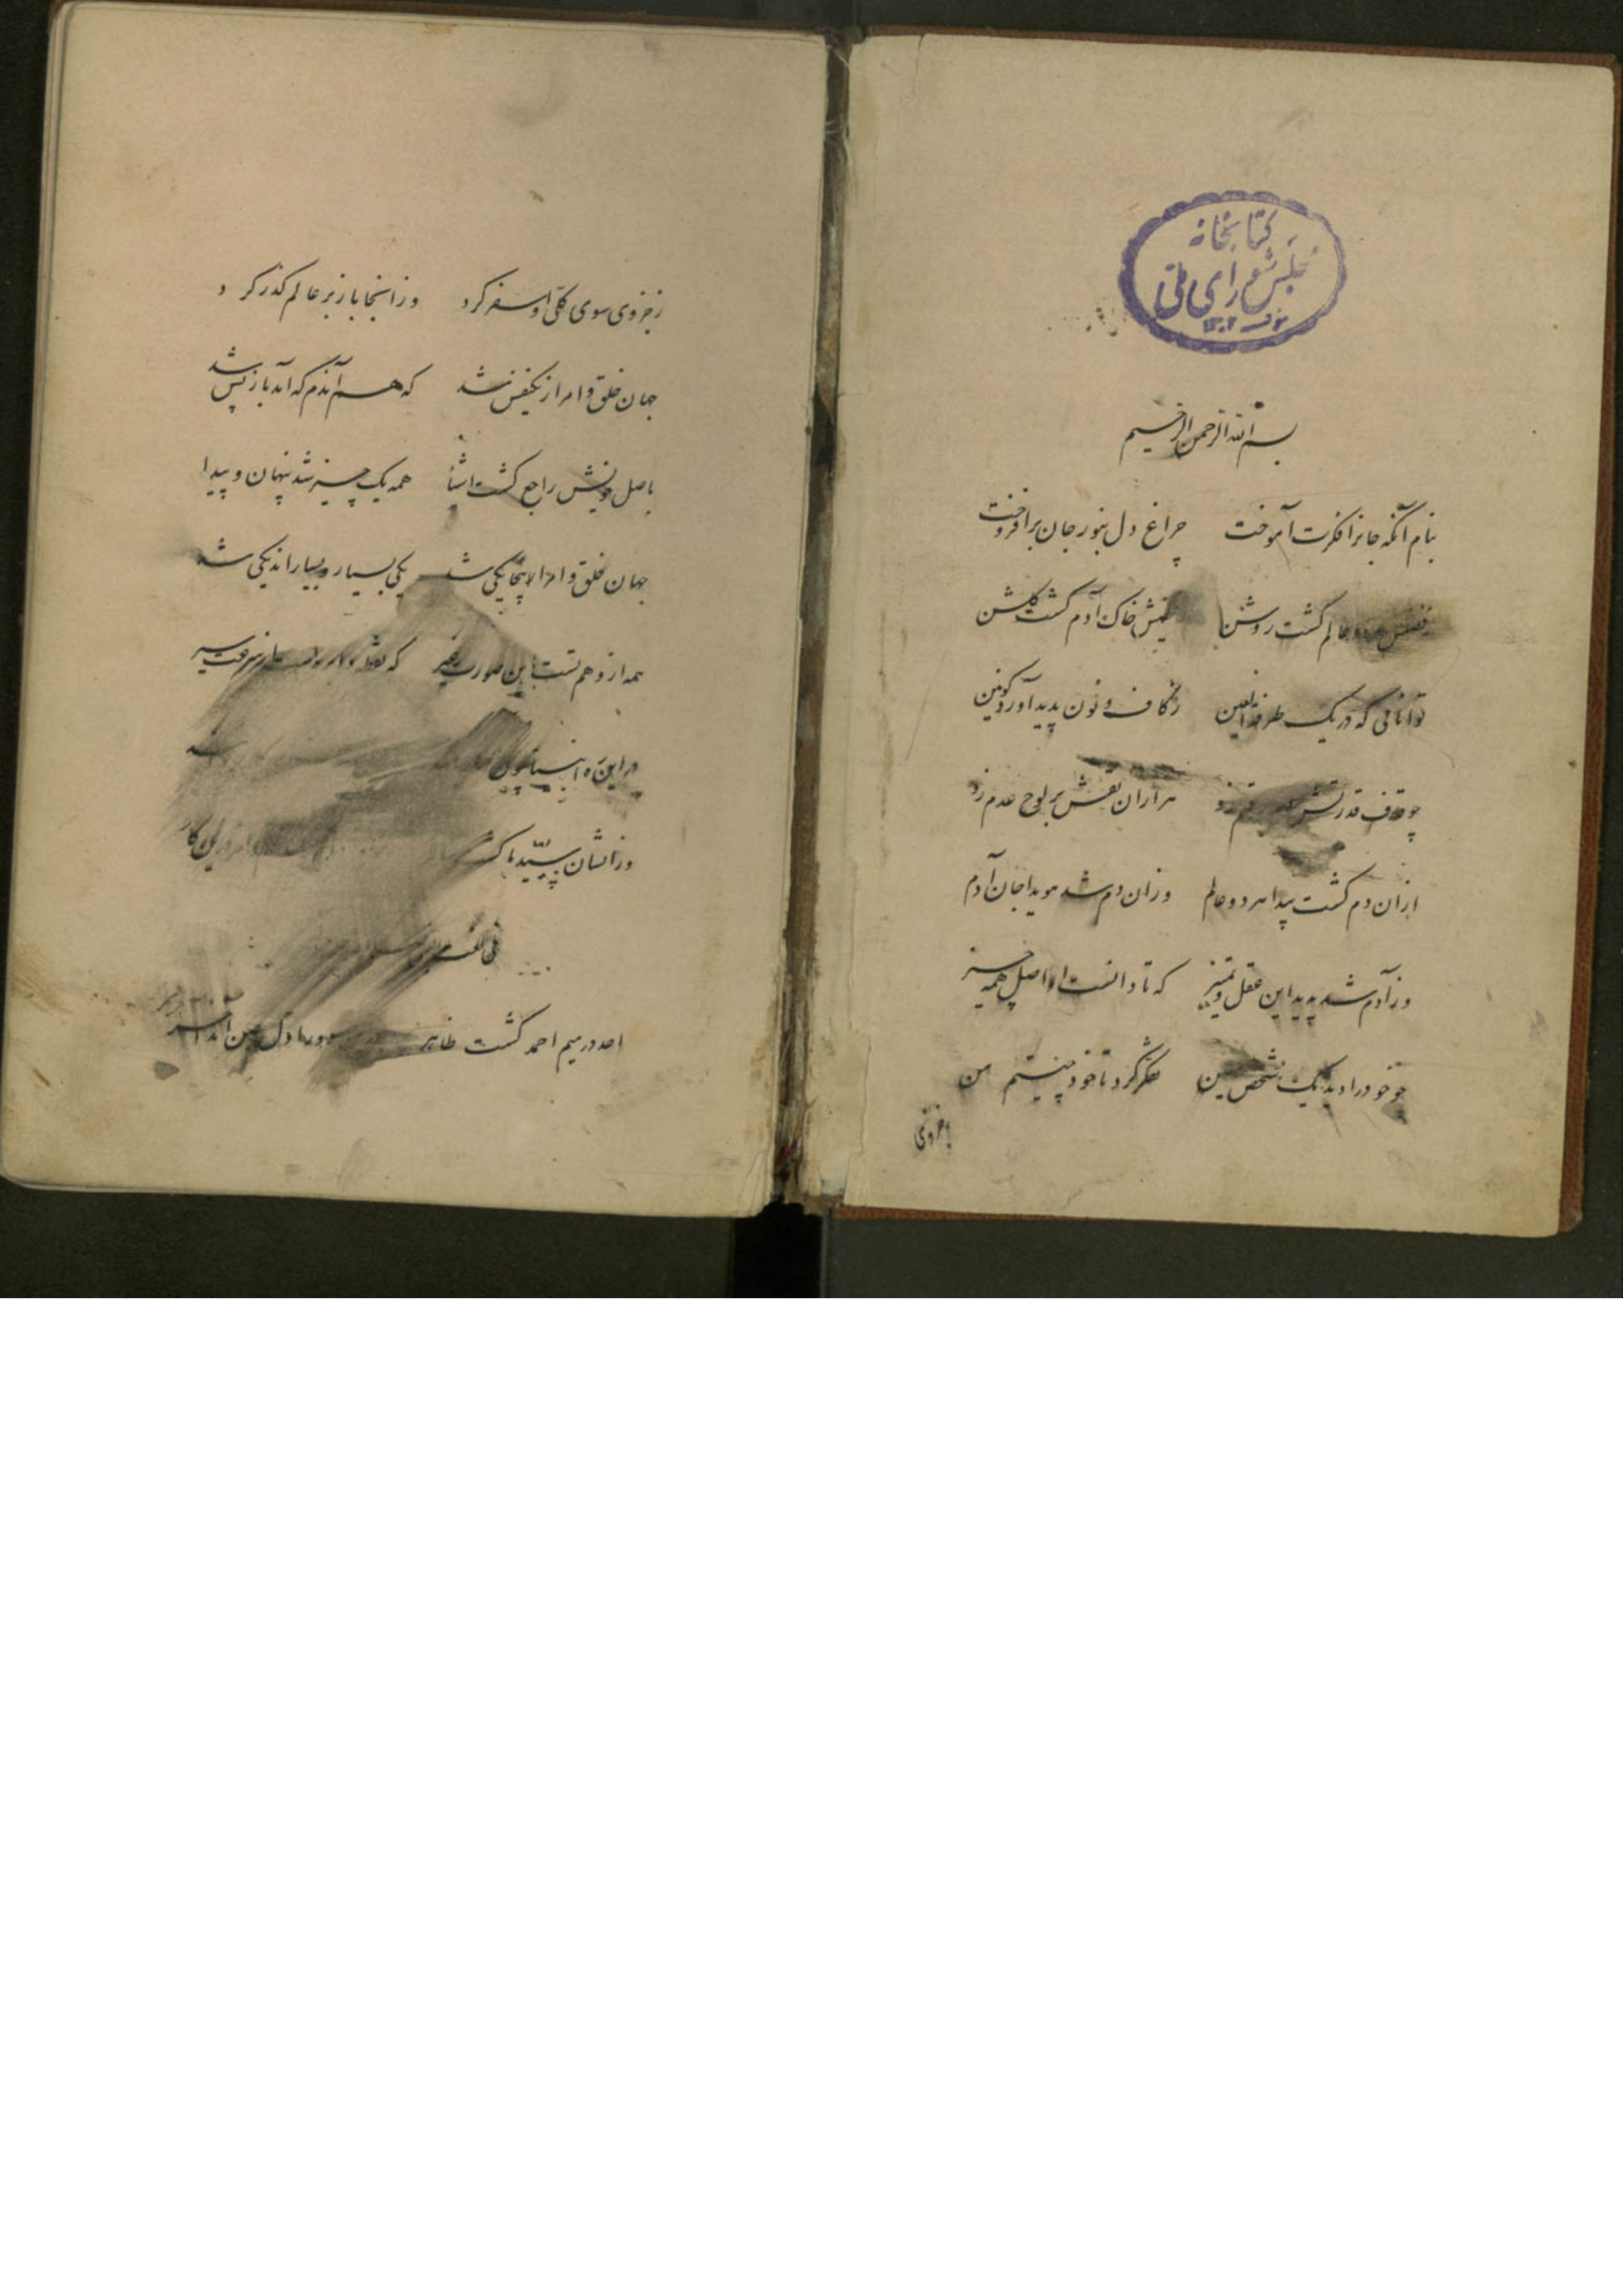 کتابخانه
مجلس شورای ملی
۱۳۰۲
بسم الله الرحمن الرحیم
بنام آنکه جانرا فکرت آموخت چراغ دل بنور جان برافروخت
عالم کشت روشن خاک آدم کشت کلشن
توانائی که در یک طرفة العین ز کاف و نون پدید آورد کونین
چو قاف قدرتش زد هزاران نقش بر لوح عدم زد
ازان دم کشت پیدا هر دو عالم وزان دم شد هویدا جان آدم
در آدم شد پدید این عقل و تمییز که تا دانست او اصل همه چیز
چو خود را دید یک شخص معین تفکر کرد تا خود چیستم من
ز جزوی
ز جزوی سوی کلی او سفر کرد وز انجا باز بر عالم کذر کرد
جهان خلق و امر از یکنفس شد که هم آندم که آمد باز پس شد
باصل خویش راجع کشت اشیا همه یک چیز شد پنهان و پیدا
جهان خلق و امر اینجا یکی شد یکی بسیار و بسیار اندکی شد
همه از وهم تست این صورت غیر که نقطه سرعت سیر
در این ره انبیا چون
وز ایشان سید ما کشت کار
احد در میم احمد کشت ظاهر در اول عین آخر